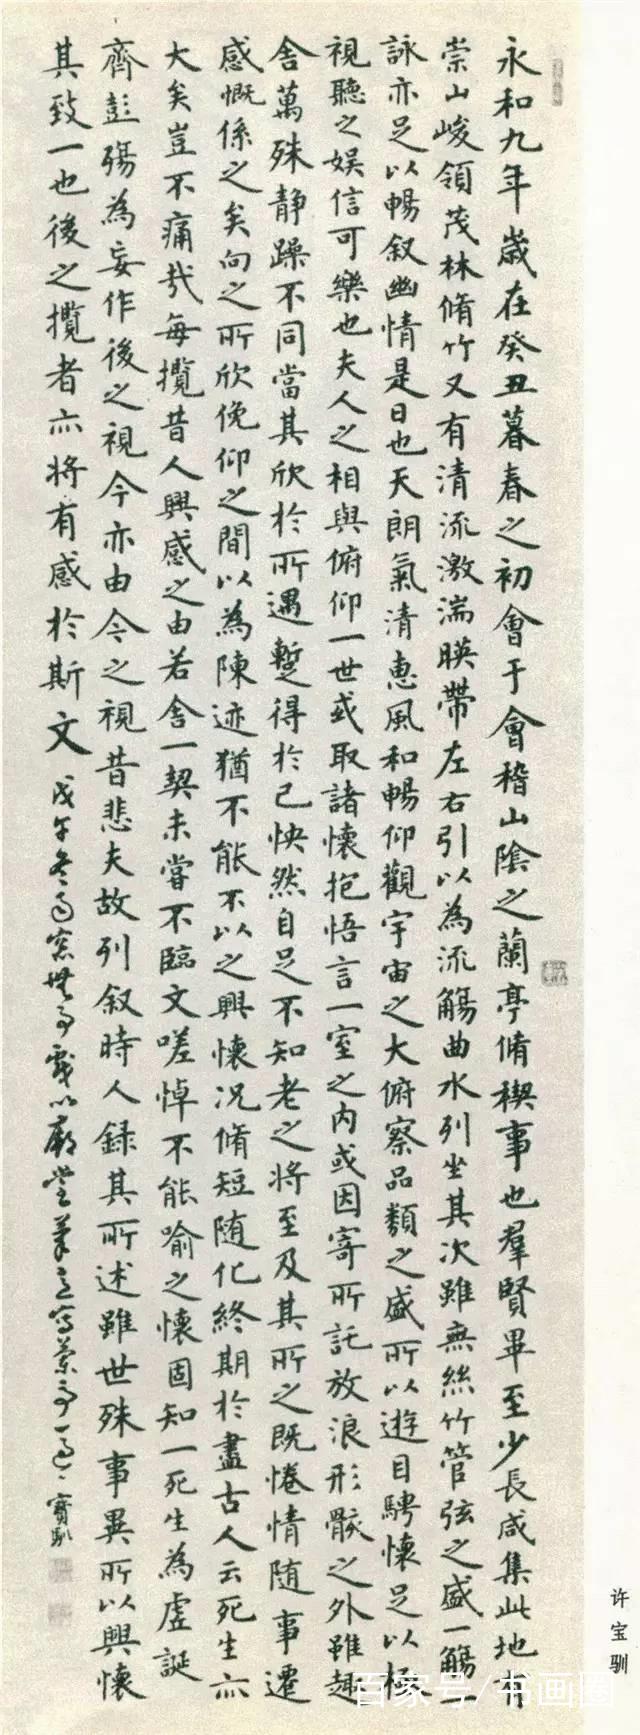 永和九年歲在癸丑暮春之初會于會稽山陰之蘭亭脩稧事也羣賢畢至少長咸集此地有
崇山峻領茂林脩竹又有清流激湍暎帶左右引以為流觴曲水列坐其次雖無絲竹管弦之盛一觴一
詠亦足以暢叙幽情是日也天朗氣清惠風和暢仰觀宇宙之大俯察品類之盛所以遊目騁懷足以極
視聽之娛信可樂也夫人之相與俯仰一世或取諸懷抱悟言一室之內或因寄所託放浪形骸之外雖趣
舍萬殊静躁不同當其欣於所遇蹔得於己怏然自足不知老之將至及其所之既惓情随事遷
感慨係之矣向之所欣俛仰之間以為陳迹猶不能不以之興懷况脩短随化終期於盡古人云死生亦
大矣豈不痛哉每攬昔人興感之由若合一契未嘗不臨文嗟悼不能喻之懷固知一死生為虛誕
齊彭殤為妄作後之視今亦由今之視昔悲夫故列叙時人錄其所述雖世殊事異所以興懷
其致一也後之攬者亦將有感於斯文 戊午冬日窓無事戲以廟堂筆意寫蘭亭一過 寶馴
许宝驯
百家号/书画圈